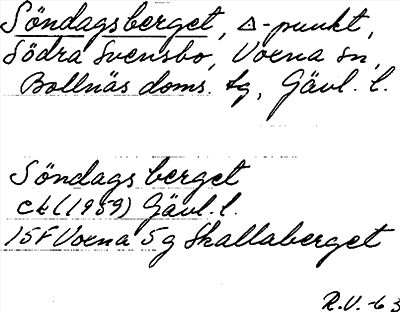 Söndagsberget, Δ-punkt,
Södra Svensbo, Voxna sn,
Bollnäs doms. tg, Gävl. l.
Söndags berget
ek (1959) Gävl. l.
15F Voxna 5g Skallaberget
R.V. -63